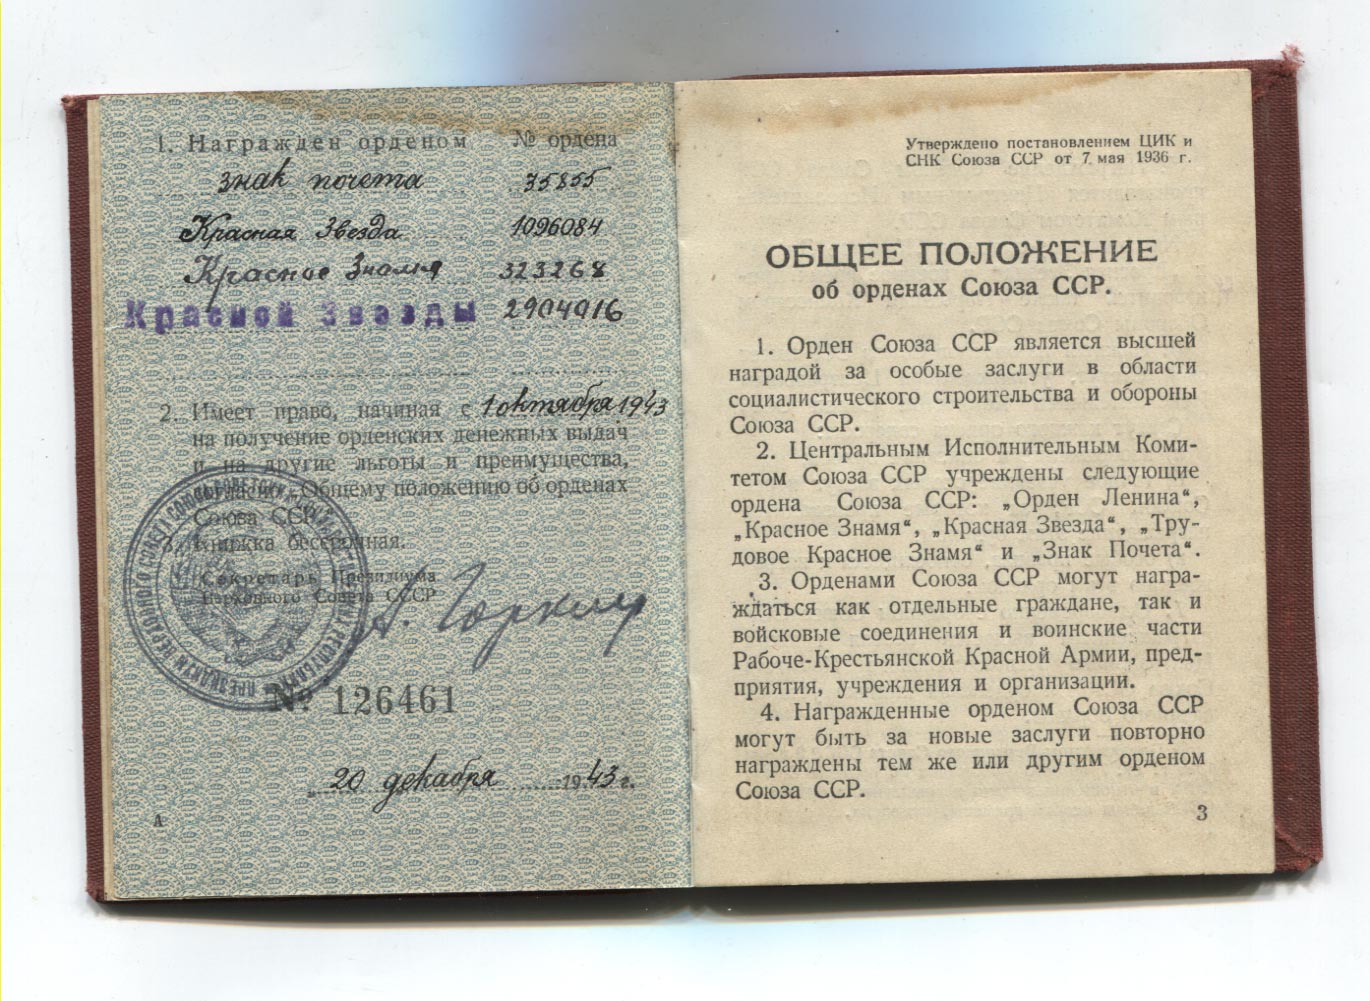 1. Награжден орденом № ордена
знак почета 35855
Красная Звезда 1096084
Красное Знамя 323268
Красной Звезды 2904916
2. Имеет право, начиная с 1 октября 1943
на получение орденских денежных выдач
и на другие льготы и преимущества,
согласно „Общему положению об орденах
Союза ССР“.
3. Книжка бессрочная.
Секретарь Президиума
Верховного Совета СССР
А. Горкин
№ 126461
„ 20 декабря 1943 г.
А
Утверждено постановлением ЦИК и
СНК Союза ССР от 7 мая 1936 г.
ОБЩЕЕ ПОЛОЖЕНИЕ
об орденах Союза ССР.
1. Орден Союза ССР является высшей
наградой за особые заслуги в области
социалистического строительства и обороны
Союза ССР.
2. Центральным Исполнительным Коми-
тетом Союза ССР учреждены следующие
ордена Союза ССР: „Орден Ленина“,
„Красное Знамя“, „Красная Звезда“, „Тру-
довое Красное Знамя“ и „Знак Почета“.
3. Орденами Союза ССР могут награ-
ждаться как отдельные граждане, так и
войсковые соединения и воинские части
Рабоче-Крестьянской Красной Армии, пред-
приятия, учреждения и организации.
4. Награжденные орденом Союза ССР
могут быть за новые заслуги повторно
награждены тем же или другим орденом
Союза ССР.
3